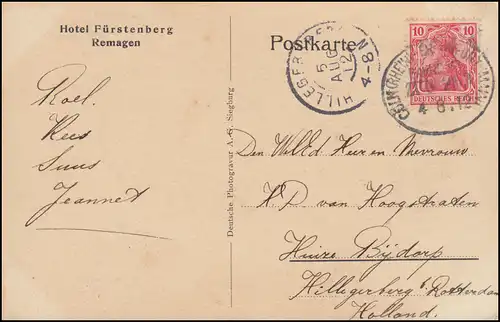 Hotel Fürstenberg
Remagen
Postkarte
HILLEGERSBERG
5 AUG 12
4-8 N
10
DEUTSCHES REICH
CÖLN (RHEIN)
4. 8. 12
Roel.
Kees
Suus
Jeannet
Deutsche Photogravur A.-G. Siegburg
Den WelEd Heer en Mevrouw
van Hoogstraten
Huize Bijdorp
Hillegersberg b/ Rotterdam
Holland.